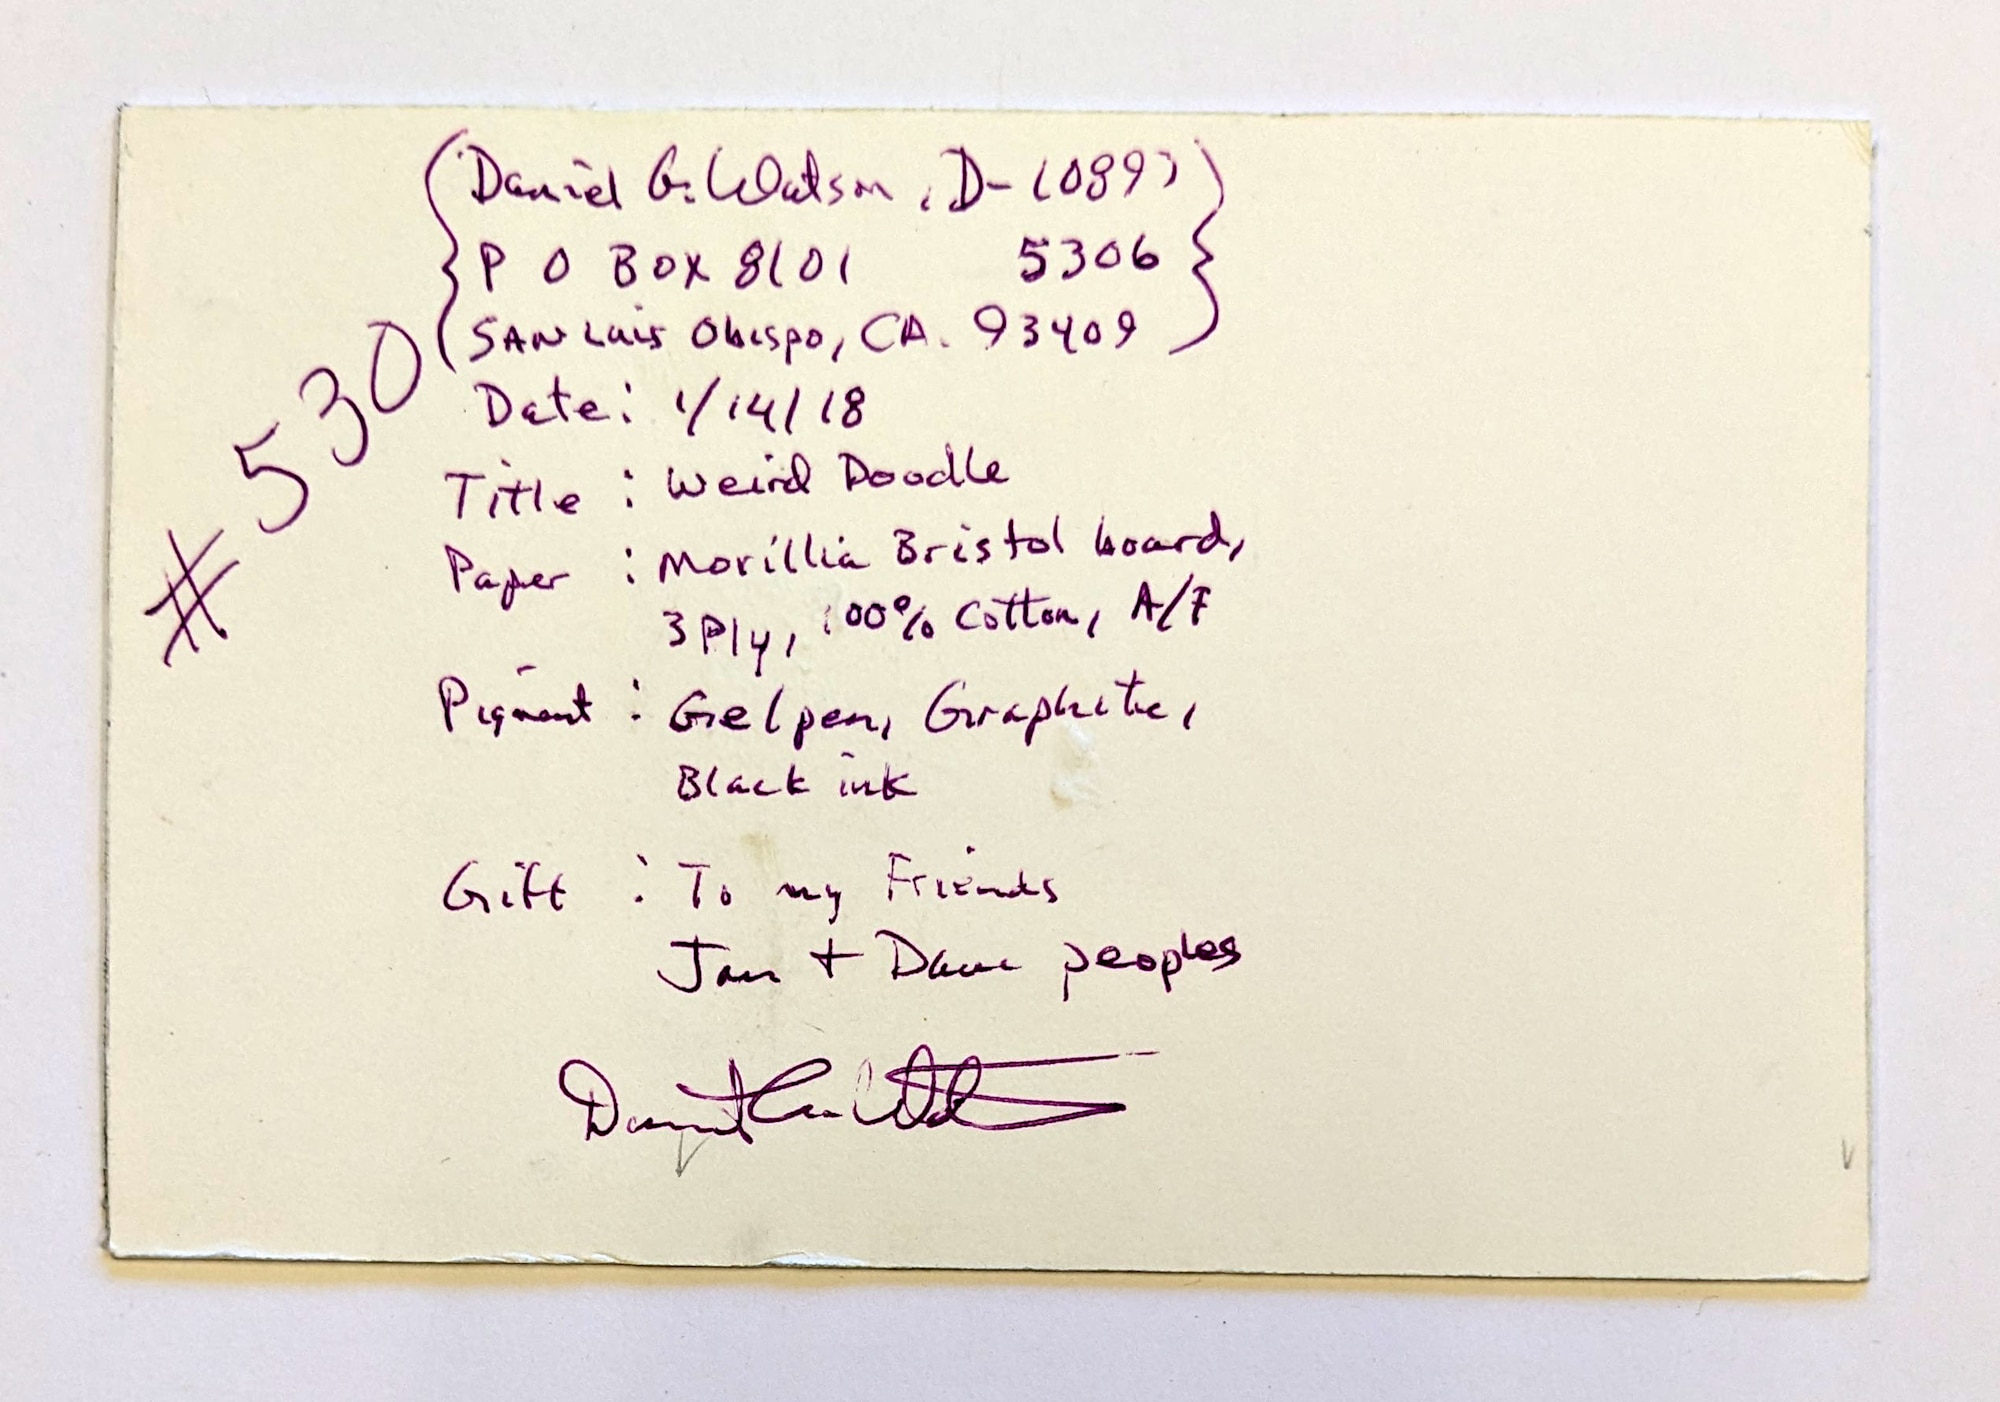 Daniel G. Watson, D-10897
P O BOX 8101 5306
SAN Luis Obispo, CA. 93409
#530
Date: 1/14/18
Title: Weird Doodle
Paper: Morillia Bristol board,
3 Ply, 100% Cotton, A/F
Pigment: Gelpen, Graphite,
Black ink
Gift: To my Friends
Jan + Dave peoples